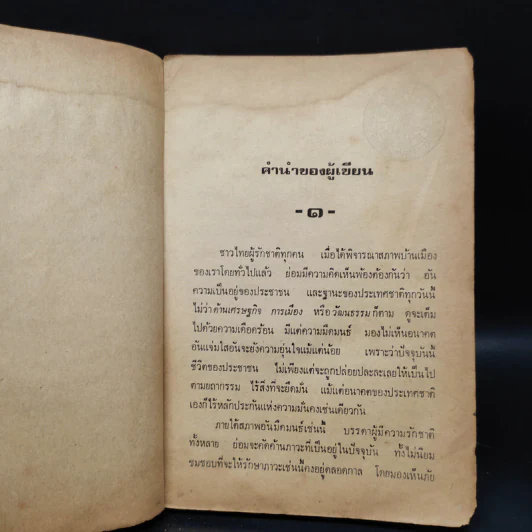 คำนำของผู้เขียน
-๑-
ชาวไทยผู้รักชาติทุกคน เมื่อได้พิจารณาสภาพบ้านเมือง
ของเราโดยทั่วไปแล้ว ย่อมมีความคิดเห็นพ้องต้องกันว่า อัน
ความเป็นอยู่ของประชาชน และฐานะของประเทศชาติทุกวันนี้
ไม่ว่าด้านเศรษฐกิจ การเมือง หรือวัฒนธรรมก็ตาม ดูจะเต็ม
ไปด้วยความเดือดร้อน มีแต่ความมืดมนธ์ มองไม่เห็นอนาคต
อันแจ่มใสอันจะยังความอุ่นใจแม้แต่น้อย เพราะว่าปัจจุบันนี้
ชีวิตของประชาชน ไม่เพียงแต่จะถูกปล่อยปละละเลยให้เป็นไป
ตามยถากรรม ไร้สิ่งที่จะยึดมั่น แม้แต่อนาคตของประเทศชาติ
เองก็ไร้หลักประกันแห่งความมั่นคงเช่นเดียวกัน
ภายใต้สภาพอันมืดมนธ์เช่นนี้ บรรดาผู้มีความรักชาติ
ทั้งหลาย ย่อมจะคัดค้านภาวะที่เป็นอยู่ในปัจจุบัน ทั้งไม่นิยม
ชมชอบที่จะให้รักษาภาวะเช่นนี้คงอยู่ตลอดกาล โดยมองเห็นภัย